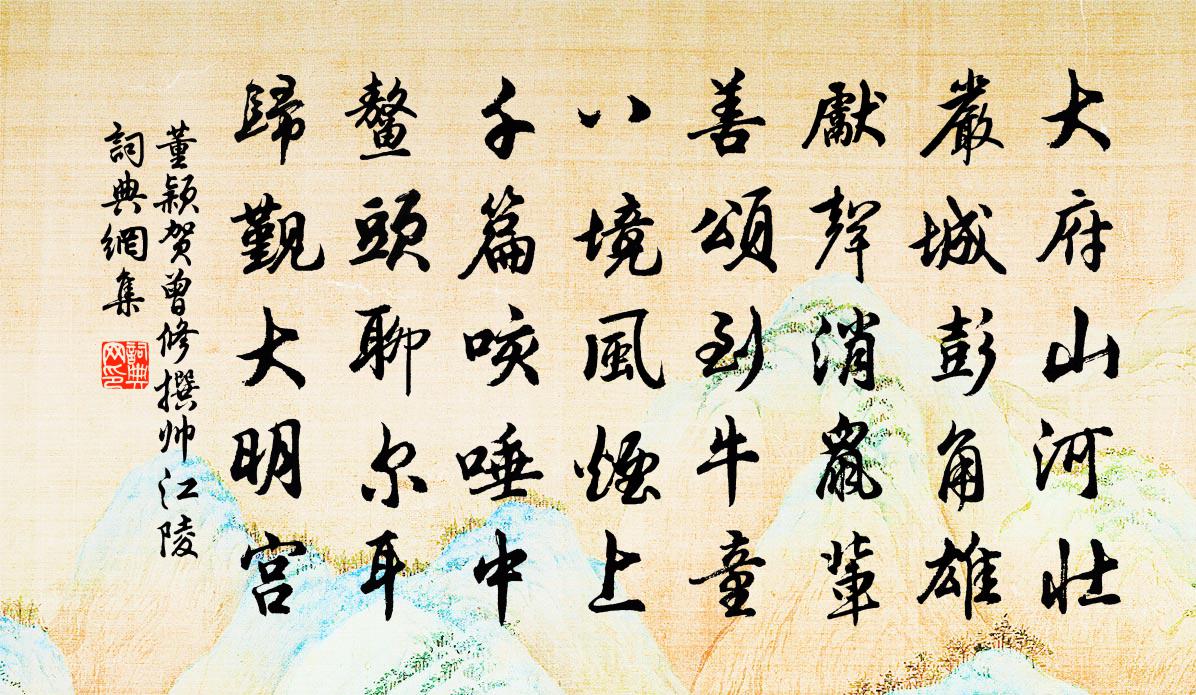 大府山河壮
嚴城彭角雄
獻聲消鼠輩
善頌到牛童
八境風煙上
千篇咳唾中
鰲頭聊尔耳
歸觀大明宮
董颖贺曾修撰帅江陵
詞典網集
詞典網印